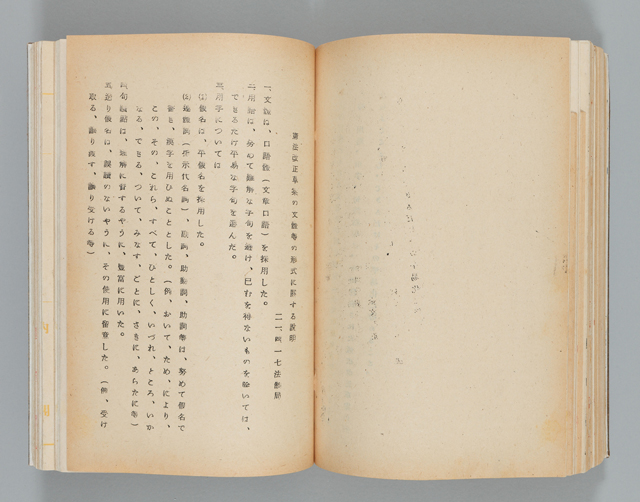 憲法改正草案の文体等の形式に関する説明
二一、四、一七法制局
一、文体は、口語体(文章口語)を採用した。
二、用語は、努めて難解な字句を避け、已むを得ないものを除いては、
できるだけ平易な字句を選んだ。
三、用字については
(1)仮名は、平仮名を採用した。
(2)代名詞(指示代名詞)、副詞、助動詞、助詞等は、努めて仮名で
書き、漢字を用ひぬこととした。(例、おいて、ため、により、
この、その、これら、すべて、ひとしく、いづれ、ところ、いか
なる、できる、ついて、みなす、ごとに、さきに、あらたに等)
四、句読点は、に資するやうに、豊富に用いた。
五、送り仮名は、誤読のないやうに、その使用に留意した。(例、受け
取る、譲り渡す、譲り受ける等)